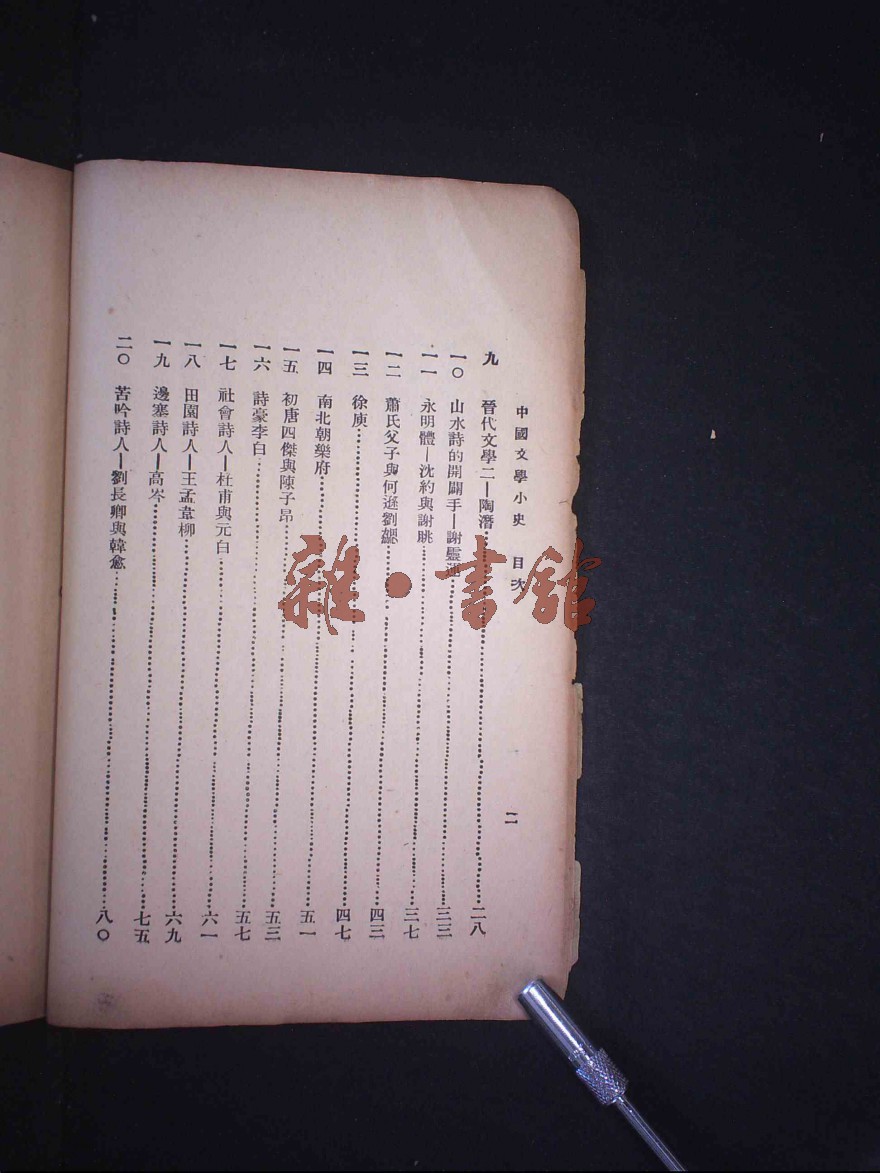 中國文學小史 目次 二
九 晉代文學二—陶潛……二八
一〇 山水詩的開闢手—謝靈運……三三
一一 永明體—沈約與謝眺……三七
一二 蕭氏父子與何遜劉勰……四三
一三 徐庾……四七
一四 南北朝樂府……五一
一五 初唐四傑與陳子昂……五三
一六 詩豪李白……五七
一七 社會詩人—杜甫與元白……六一
一八 田園詩人—王孟韋柳……六九
一九 邊塞詩人—高岑……七五
二〇 苦吟詩人—劉長卿與韓愈……八〇
雜·書館